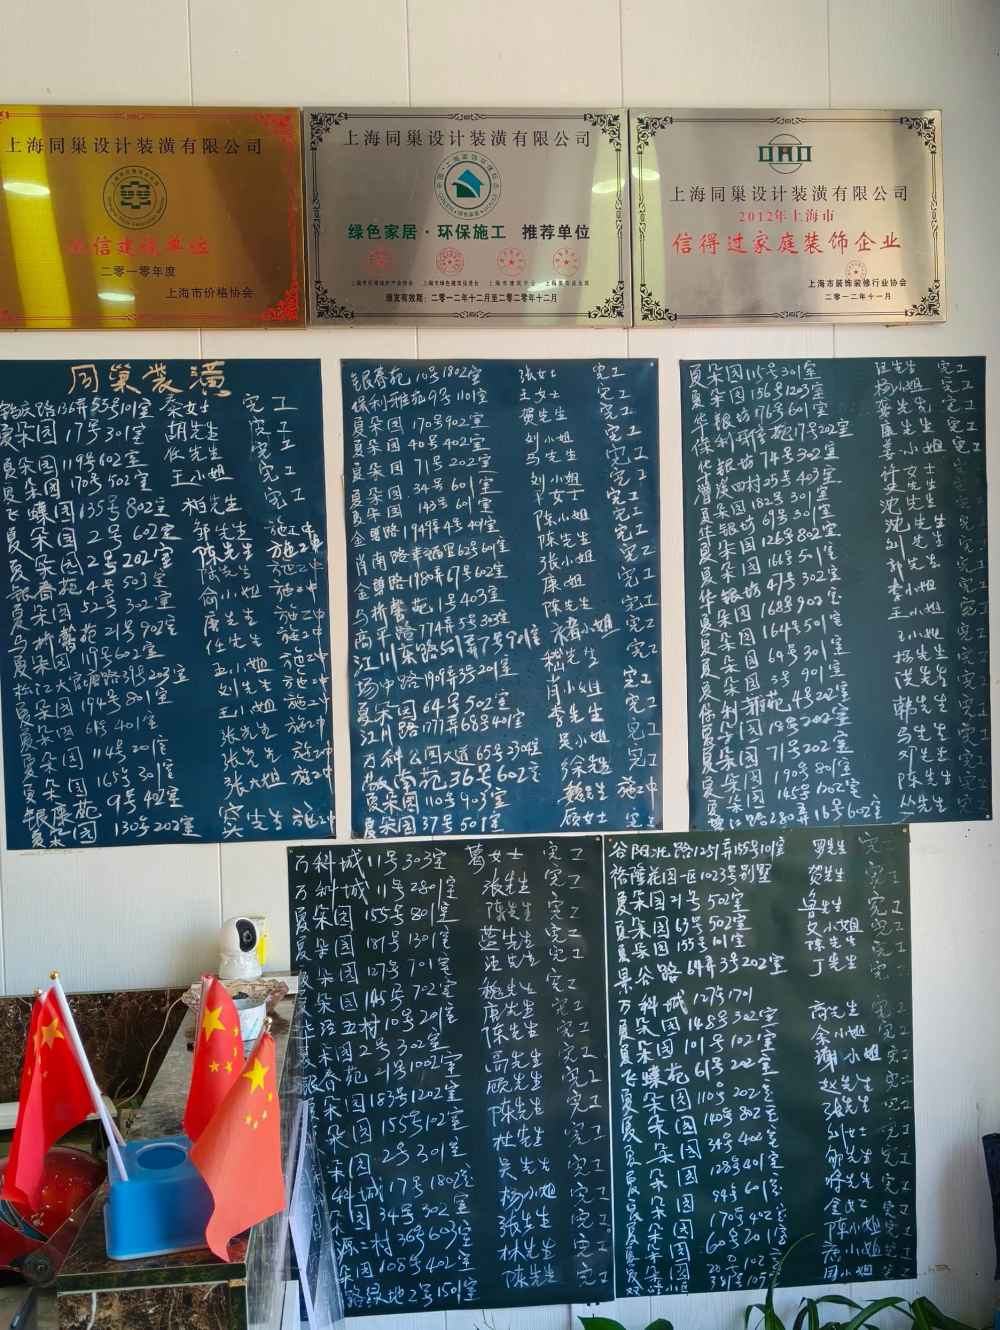 上海同巢设计装潢有限公司
诚信建设单位
二零一零年度
上海市价格协会
上海同巢设计装潢有限公司
绿色家居·环保施工 推荐单位
颁发有效期：二零一二年十二月至二零二零年十二月
上海同巢设计装潢有限公司
2012年上海市
信得过家庭装饰企业
上海市装饰装修行业协会
二零一二年十一月
同巢装潢
秦女士 完工
夏朵园 17号301室 胡先生 完工
夏朵园 119号602室 任先生 完工
夏朵园 170号502室 王小姐 完工
飞蝶园 135号802室 柏先生 完工
夏朵园 2号602室 邹先生 施工中
夏朵园 2号202室 陈先生 施工中
银春苑 4号503室 陆先生 施工中
夏朵园 52号302室 俞小姐 施工中
马桥馨苑 21号902室 唐先生 施工中
夏朵园 119号602室 任先生 施工中
203室 王小姐 施工中
夏朵园 194号801室 刘先生 施工中
夏朵园 401室 王小姐 施工中
夏朵园 114号201室 张先生 施工中
夏朵园 165号301室 张先生 施工中
银康苑 9号402室 张大姐 施工中
夏朵园 130号202室 先生 施工中
银春苑 10号1802室 张女士 完工
保利雅苑9号1101室 王女士 完工
夏朵园 170号902室 贺先生 完工
夏朵园 40号402室 刘小姐 完工
夏朵园 71号202室 马先生 完工
夏朵园 34号601室 刘小姐 完工
夏朵园 143号601室 女士 完工
金碧路1949弄4号401室 陈小姐 完工
肖南路 62号601室 陈先生 完工
金碧路1980弄67号602室 张小姐 完工
马桥馨苑 1号403室 康姐 完工
高平路774弄5号303室 陈先生 完工
江川东路 弄7号901室 褚小姐 完工
场中路1909弄3号201室 嵇先生 完工
夏朵园 64号502室 肖小姐 完工
江川路1777弄68号401室 李先生 完工
万科公园大道65号2304室 吴小姐 完工
敏南苑 36号602室 徐先生 完工
夏朵园 110号403室 魏先生 施工中
夏朵园 37号501室 顾女士
夏朵园 115号301室 汪先生 完工
夏朵园 156号1203室 杨小姐 完工
华银坊 176号601室 龚先生 完工
保利雅苑17号202室 康先生 完工
华银坊 74号302室 姜小姐 完工
35号403室 许女士
夏朵园 182号301室 先生
华银坊 69号301室 沈先生
夏朵园 126号802室 沈先生
夏朵园 166号501室 刘先生
华银坊 47号302室 郭先生
夏朵园 168号902室 李小姐
夏朵园 164号501室 王小姐
夏朵园 64号301室 王小姐
夏朵园 3号901室 杨先生
保利雅苑4号202室 洪先生
夏朵园 18号202室 韩先生
夏朵园 71号202室 马先生
夏朵园 190号801室 刘先生
夏朵园 145号1202室 陈先生
路280弄16号602室 丛先生
万科城11号303室 葛女士 完工
万科城 11号2801室 张先生 完工
夏朵园 155号801室 陈先生 完工
夏朵园 181号1301室 蓝先生 完工
夏朵园 127号701室 汪先生 完工
夏朵园 145号702室 魏先生 完工
五村10号201室 唐先生 完工
夏朵园 2号302室 陈先生 完工
银春苑 21号1002室 高先生 完工
夏朵园 183号1202室 顾先生 完工
夏朵园 155号102室 陈先生 完工
夏朵园 2号201室 杜先生 完工
万科城17号1802室 吴先生 完工
夏朵园 34号302室 杨小姐 完工
村36号603室 张先生 完工
夏朵园108号402室 林先生 完工
路绿地2号1501室 陈先生 完工
谷阳北路1251弄155号101室 罗先生 完工
裕隆花园一区1023号别墅 贺先生 完工
夏朵园21号502室 鲁先生 完工
夏朵园 63号502室 文小姐 完工
夏朵园 155号101室 陈先生 完工
景谷路64弄3号202室 丁先生 完工
万科城 127号701
夏朵园 148号302室 商先生 完工
夏朵园 101号102室 余小姐 完工
飞蝶苑 61号202室 谢小姐 完工
夏朵园 110号202室 赵先生 完工
夏朵园 140号802室 张先生 完工
夏朵园 39号402室 女士 完工
夏朵园 128号401室 邹先生 完工
夏朵园 94号601室 先生 完工
夏朵园 170号402室 金女士 完工
夏朵园 60号201室 陈小姐 完工
102室 小姐 完工
105室 周小姐 完工